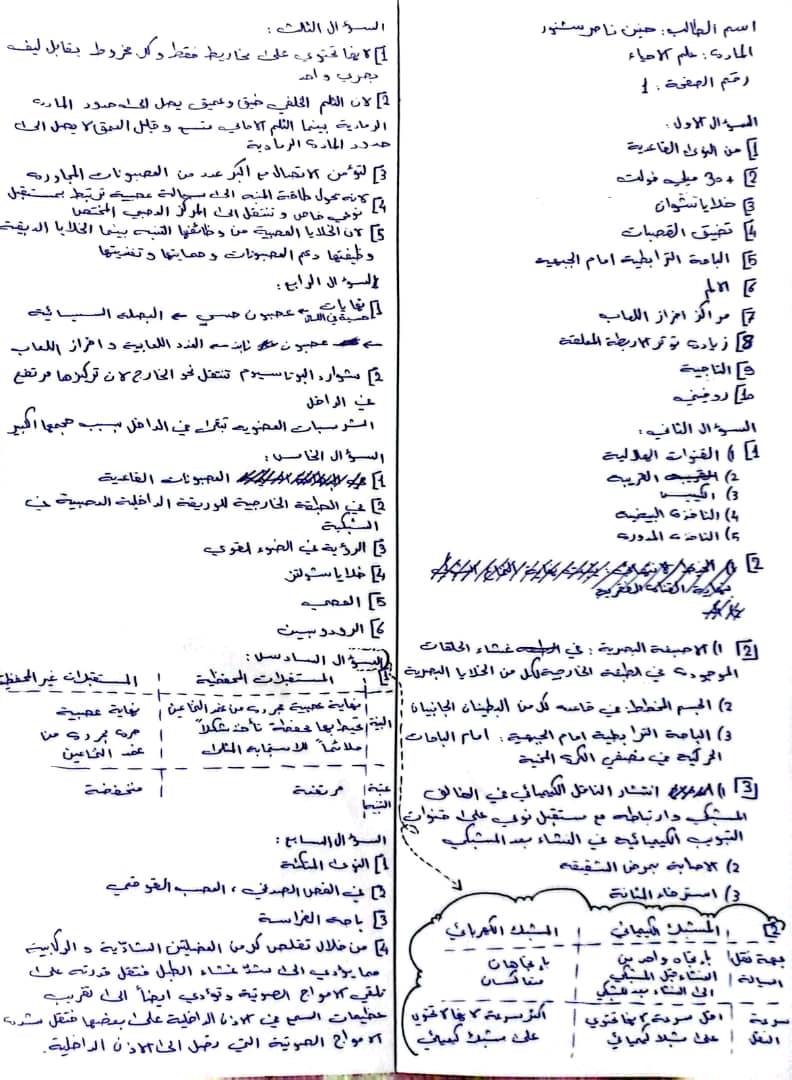 اسم الطالب: حنين ناصر سنور
المادة: علم الاحياء
رقم الصفحة: 1
السؤال الاول:
1] من النوى القاعدية
2] +30 ميلي فولت
3] خلايا شوان
4] تضيق القصبات
5] الباحة الترابطية امام الجبهية
6] الالم
7] مراكز افراز اللعاب
8] زيادة توتر الاربطة المعلقة
9] التاجية
10] رودوبسين
السؤال الثاني:
1] 1) القنوات الهلالية
2) القريبة
3) الكييس
4) النافذة البيضية
5) النافذة المدورة
2] 1) الاصبغة البصرية: في غشاء الحلقات
الموجودة في القطعة الخارجية لكل من الخلايا البصرية
2) الجسم المخطط: في قاعدة كل من البطينان الجانبيان
3) الباحة الترابطية امام الجبهية: امام الباحات
الحركية في نصفي الكرة المخية
3] 1) انتشار الناقل الكيميائي في الفالق
المشبكي وارتباطه مع مستقبل نوعي على قنوات
التبويب الكيميائية في الغشاء بعد المشبكي
2) الاصابة بمرض الشقيقة
3) استرخاء المثانة
2] المشبك الكيميائي | المشبك الكهربائي
جهة نقل السيالة | باتجاه واحد من الغشاء قبل المشبكي الى الغشاء بعد المشبكي | باتجاهان متعاكسان
سرعة النقل | اقل سرعة لانها تحتوي على مشبك كيميائي | اكثر سرعة لانها لا تحتوي على مشبك كيميائي
السؤال الثالث:
1] لانها تحتوي على مخاريط فقط وكل مخروط يقابل ليف
بصري واحد
2] لان الثلم الخلفي ضيق وعميق يصل الى حدود المادة
الرمادية بينما الثلم الامامي متسع وقليل العمق لا يصل الى
حدود المادة الرمادية
3] لتؤمن الاتصال مع اكبر عدد من العصبونات المجاورة
4] لانه يحول طاقة المنبه الى سيالة عصبية ترتبط بمستقبل
نوعي خاص وتنتقل الى المركز العصبي المختص
5] لان الخلايا العصبية من وظائفها التنبه بينما الخلايا الدبقية
وظيفتها دعم العصبونات وحمايتها وتغذيتها
السؤال الرابع:
1] نهايات حسية في اللسان ← عصبون حسي ← البصلة السيسائية
← عصبون نابذ ← الغدد اللعابية وافراز اللعاب
2] شوارد البوتاسيوم تنتقل نحو الخارج لان تركيزها مرتفع
في الداخل
الشرسبات العضوية تبقى في الداخل بسبب حجمها الكبير
السؤال الخامس:
1] العصبونات القاعدية
2] في الطبقة الخارجية للوريقة الداخلية العصبية في
الشبكية
3] الرؤية في الضوء القوي
4] خلايا سرتولي
5] العصي
6] الرودوبسين
السؤال السادس:
1] المستقبلات المحفظية | المستقبلات غير المحفظية
البنية | نهاية عصبية مجردة من غمد النخاعين تحيط بها محفظة تأخذ شكلاً ملائماً للاستجابة المثلى | نهاية عصبية حرة مجردة من غمد النخاعين
عتبة التنبيه | مرتفعة | منخفضة
السؤال السابع:
1] النوى المتكئة
2] في الفص الصدغي، العصب القوقعي
3] باحة الفراسة
4] من خلال تقلص كل من العضلتين الشادية والركابية
مما يؤدي الى شد غشاء الطبل فتقل قدرته على
تلقي الامواج الصوتية وتؤدي ايضاً الى تقريب
عظيمات السمع في الاذن الداخلية على بعضها فتقل شدة
الامواج الصوتية التي تصل الى الاذن الداخلية.